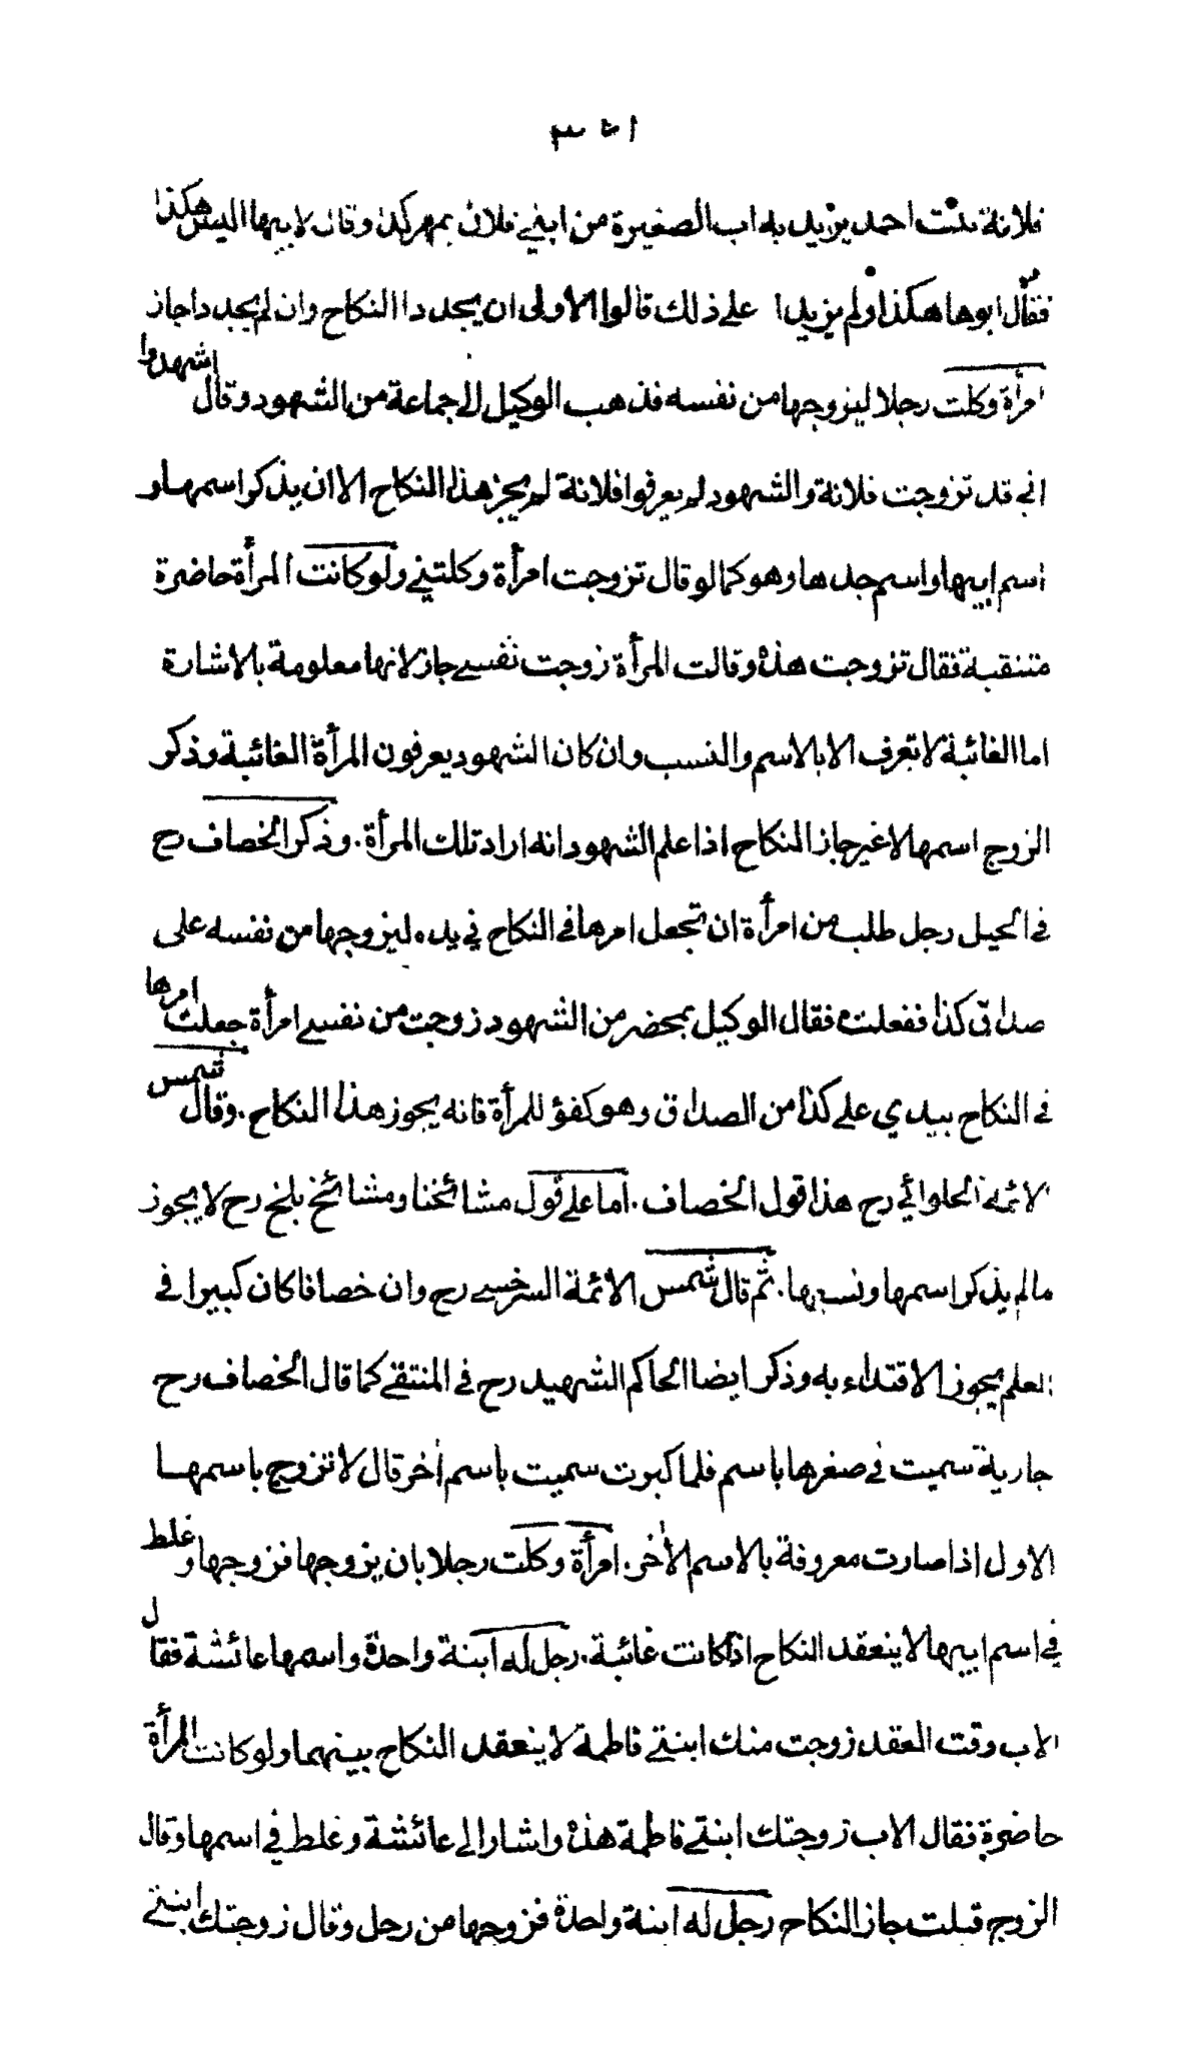 ٣٥١
فلانة بنت احمد يريد به اب الصغيرة من ابني فلان بمهر كذا وقال لابيها اليس هكذا
فقال ابوها هكذا ولم يزيدا على ذلك قالوا الاولى ان يجددا النكاح وان لم يجددا جاز
امرأة وكلت رجلا ليزوجها من نفسه فذهب الوكيل الى جماعة من الشهود وقال اشهدوا
اني قد تزوجت فلانة والشهود لم يعرفوا فلانة لم يجز هذا النكاح الا ان يذكر اسمها و
اسم ابيها واسم جدها وهو كما لو قال تزوجت امرأة وكلتني ولو كانت المرأة حاضرة
متنقبة فقال تزوجت هذه وقالت المرأة زوجت نفسي جاز لانها معلومة بالاشارة
اما الغائبة لا تعرف الا بالاسم والنسب وان كان الشهود يعرفون المرأة الغائبة وذكر
الزوج اسمها لا غير جاز النكاح اذا علم الشهود انه اراد تلك المرأة. وذكر الخصاف رح
في الحيل رجل طلب من امرأة ان تجعل امرها في النكاح في يده ليزوجها من نفسه على
صداق كذا ففعلت فقال الوكيل بمحضر من الشهود زوجت من نفسي امرأة جعلت امرها
في النكاح بيدي على كذا من الصداق وهو كفؤ للمرأة فانه يجوز هذا النكاح. وقال شمس
الائمة الحلوائي رح هذا قول الخصاف. اما على قول مشائخنا ومشائخ بلخ رح لا يجوز
ما لم يذكر اسمها ونسبها. ثم قال شمس الائمة السرخسي رح وان خصافا كان كبيرا في
العلم يجوز الاقتداء به وذكر ايضا الحاكم الشهيد رح في المنتقى كما قال الخصاف رح
جارية سميت في صغرها باسم فلما كبرت سميت باسم أخر قال لا تزوج باسمها
الاول اذا صارت معروفة بالاسم الأخر. امرأة وكلت رجلا بان يزوجها فزوجها وغلط
في اسم ابيها لا ينعقد النكاح اذا كانت غائبة. رجل له ابنة واحدة واسمها عائشة فقال
الاب وقت العقد زوجت منك ابنتي فاطمة لا ينعقد النكاح بينهما ولو كانت المرأة
حاضرة فقال الاب زوجتك ابنتي فاطمة هذه واشار الى عائشة وغلط في اسمها وقال
الزوج قبلت جاز النكاح رجل له ابنة واحدة فزوجها من رجل وقال زوجتك ابنتي